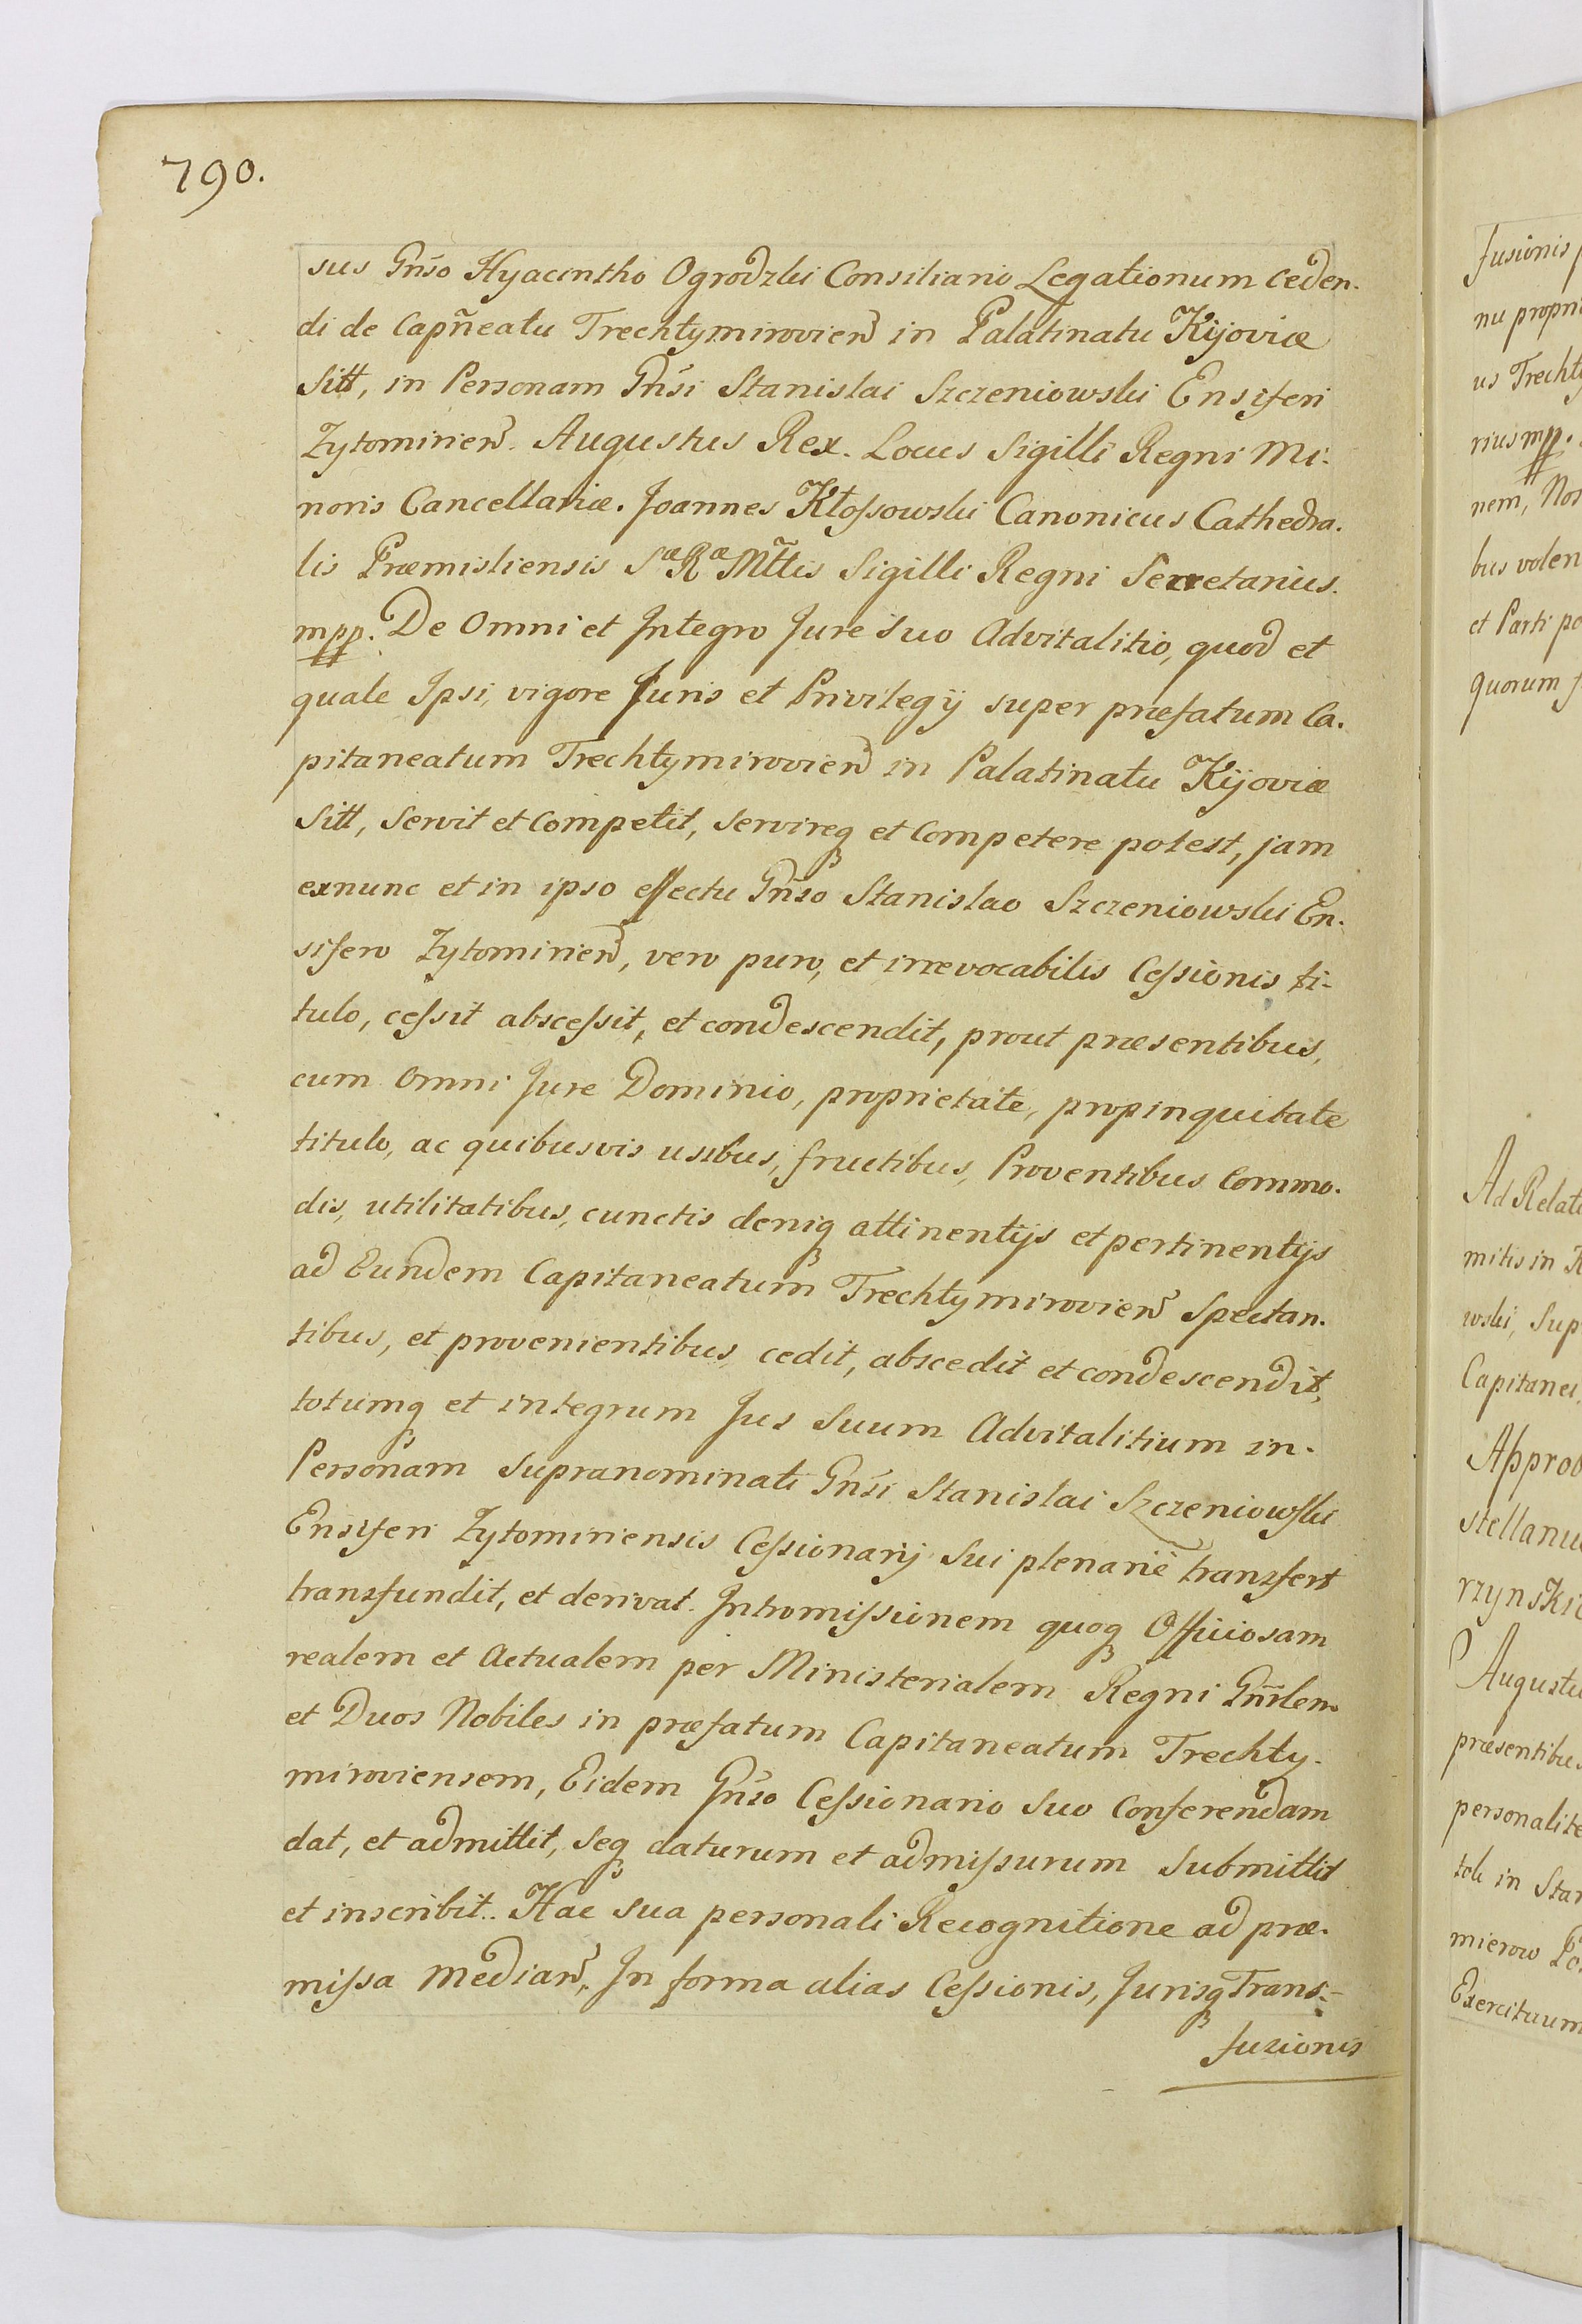 790.
sus Gñso Hyacintho Ogrodzki Consiliario Legationum ceden-
di de Capñeatu Trechtymirovien in Palatinatu Kijoviæ
Sitt, in Personam Gñsi Stanislai Szczeniowski Ensiferi
Zytomirien. Augustus Rex. Locus Sigilli Regni Mi-
noris Cancellariæ. Joannes Kłossowski Canonicus Cathedra-
lis Præmisliensis Sæ Ræ Mttis Sigilli Regni Secretarius.
mpp. De Omni et Integro Jure Suo Advitalitio, quod et
quale Ipsi, vigore Juris et Privilegij super præfatum Ca-
pitaneatum Trechtymirovien in Palatinatu Kijoviæ
Sitt, Servit et Competit, Servireq et Competere potest, jam
exnunc et in ipso effectu Gñso Stanislao Szczeniowski En-
sifero Zytomirien, vero puro, et irrevocabilis Cessionis ti-
tulo, cessit abscessit, et condescendit, prout præsentibus,
cum Omni Jure Dominio, proprietate, propinquitate
titulo, ac quibusvis usibus, fructibus, Proventibus Commo-
dis, utilitatibus, cunctis deniq attinentijs et pertinentijs
ad Eundem Capitaneatum Trechtymirovien Spectan-
tibus, et provenientibus, cedit, abscedit et condescendit,
totumq et integrum Jus Suum Advitalitium in-
Personam Supranominati Gñsi Stanislai Szczeniowski
Ensiferi Zytomiriensis Cessionarij Sui plenariè transfert
transfundit, et derivat. Intromissionem quoq Officiosam
realem et Actualem per Ministerialem Regni Gñrlem
et Duos Nobiles in præfatum Capitaneatum Trechty-
miroviensem, Eidem Gñso Cessionario Suo Conferendam
dat, et admittit, Seq daturum et admissurum Submittit
et inscribit. Hac Sua personali Recognitione ad præ-
missa Median, In forma alias Cessionis, Jurisq Trans-
fusionis
fusionis
nu propri
us Trechty
rius mpp.
nem, Nos
bus volen
et Parti po
quorum
Ad Relati
mitis in K
wski, Sup
Capitanei,
Approb
stellanu
rzynski
Augustu
præsentibus
personalite
toli in Stan
mierow
Exercituum